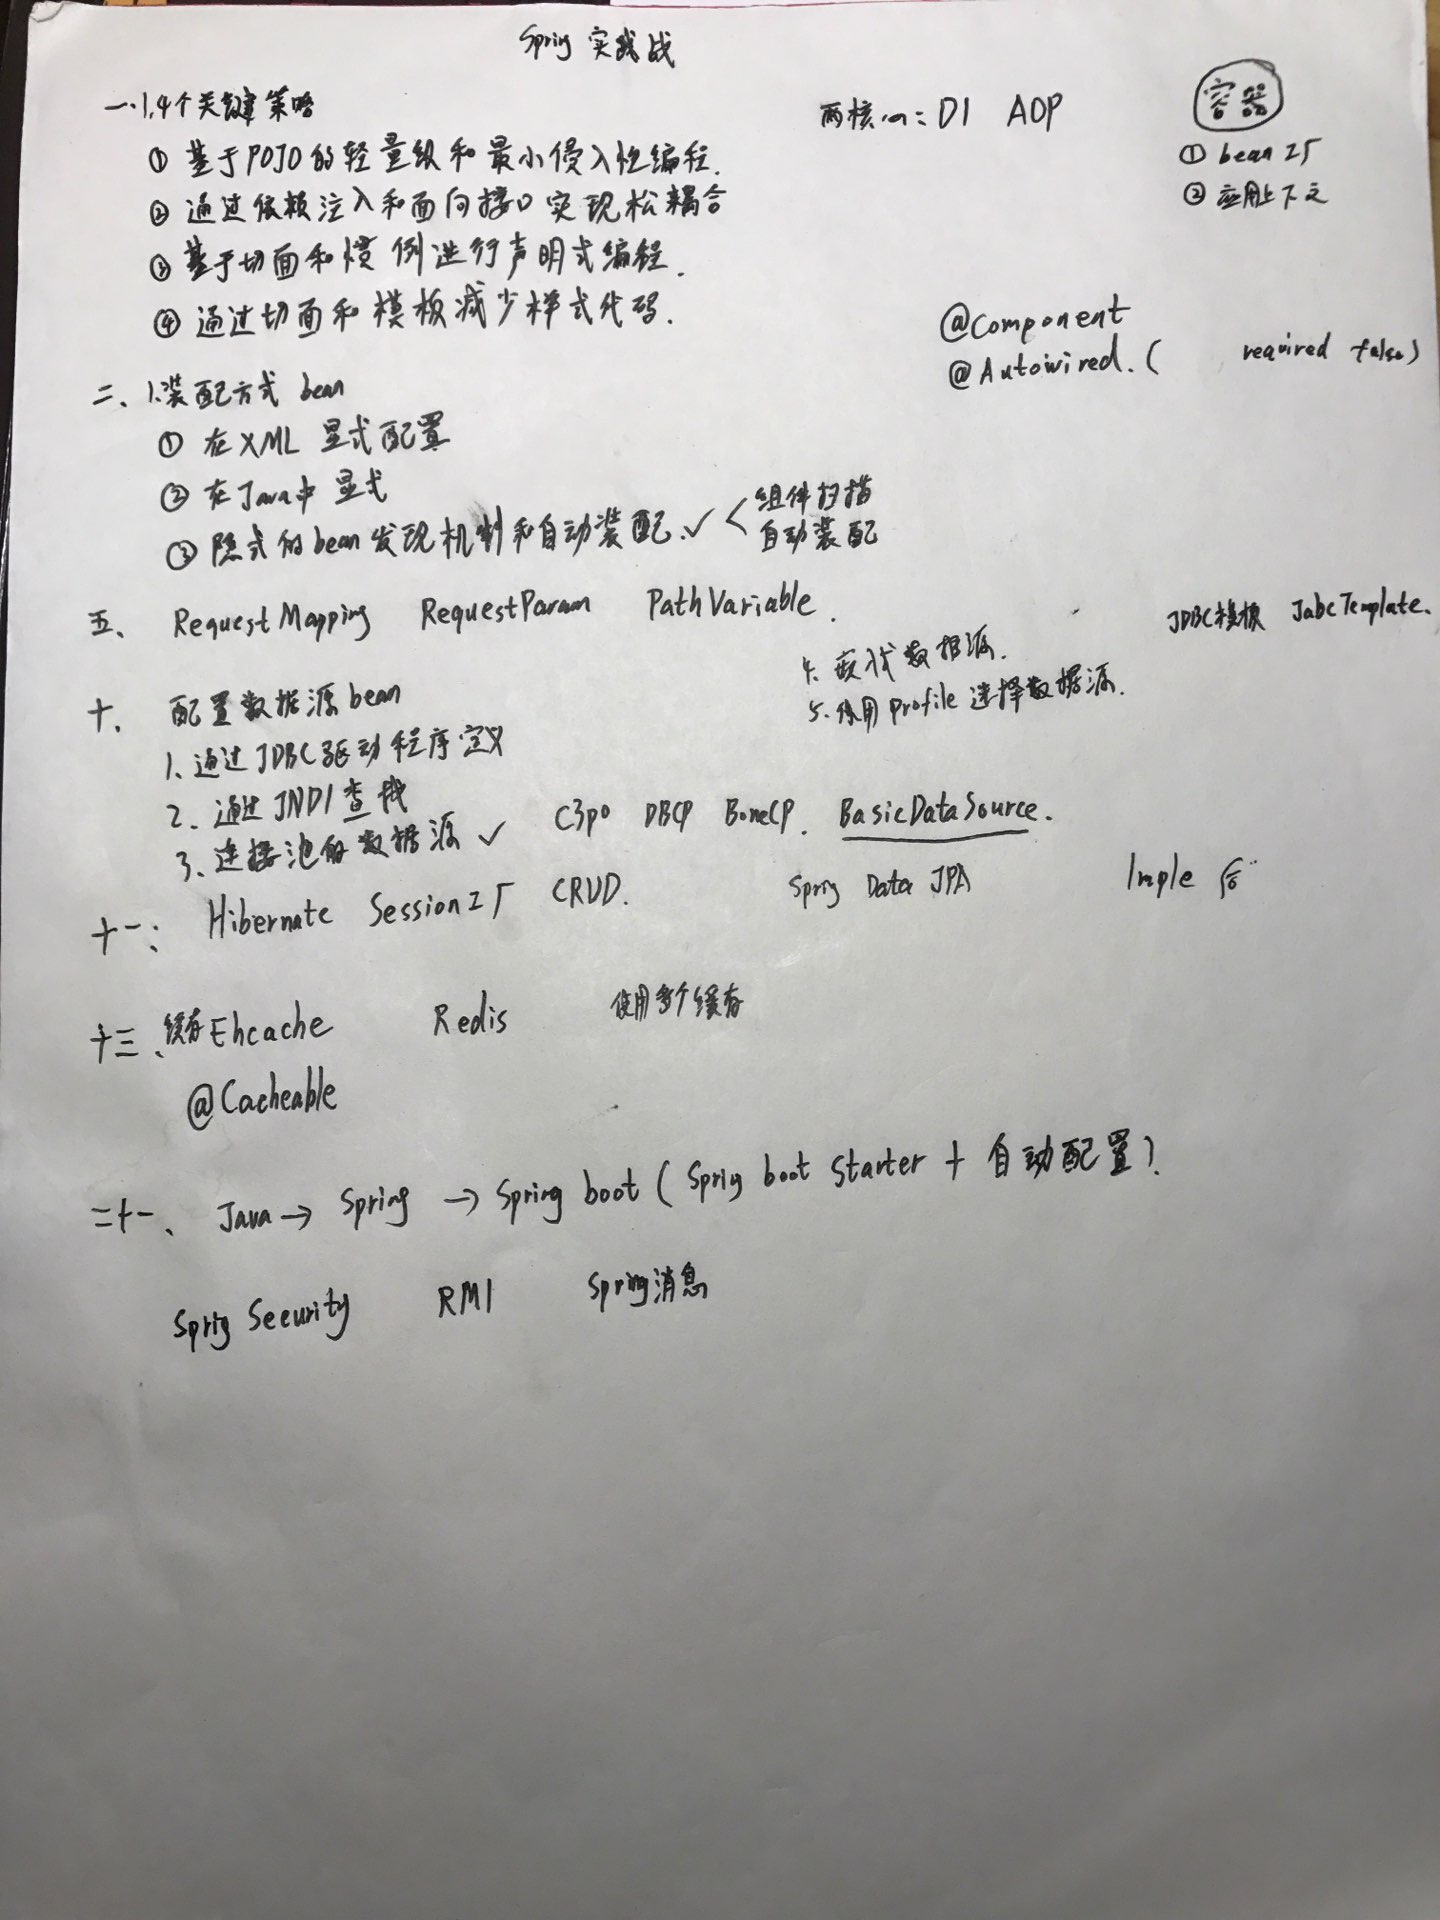 Spring 实践战
一.1.4个关键策略
两核心: DI AOP
容器
① bean工厂
② 应用上下文
① 基于POJO的轻量级和最小侵入性编程.
② 通过依赖注入和面向接口实现松耦合
③ 基于切面和惯例进行声明式编程.
④ 通过切面和模板减少样式代码.
@Component
@Autowired. ( required false)
二、1.装配方式 bean
① 在XML 显式配置
② 在Java中 显式
③ 隐式的bean发现机制和自动装配.✓ <
组件扫描
自动装配
五、 RequestMapping RequestParam PathVariable.
JDBC模板 JdbcTemplate.
十、 配置数据源bean
1、通过JDBC驱动程序定义
2、通过JNDI查找
3、连接池的数据源 ✓ C3p0 DBCP BoneCP. BasicDataSource.
4. 嵌入式数据源.
5. 使用Profile选择数据源.
十一: Hibernate Session工厂 CRUD. Spring Data JPA Imple
十三、缓存Ehcache Redis 使用多个缓存
@Cacheable
二十一、 Java → Spring → Spring boot ( Spring boot Starter + 自动配置).
Spring Security RMI Spring消息